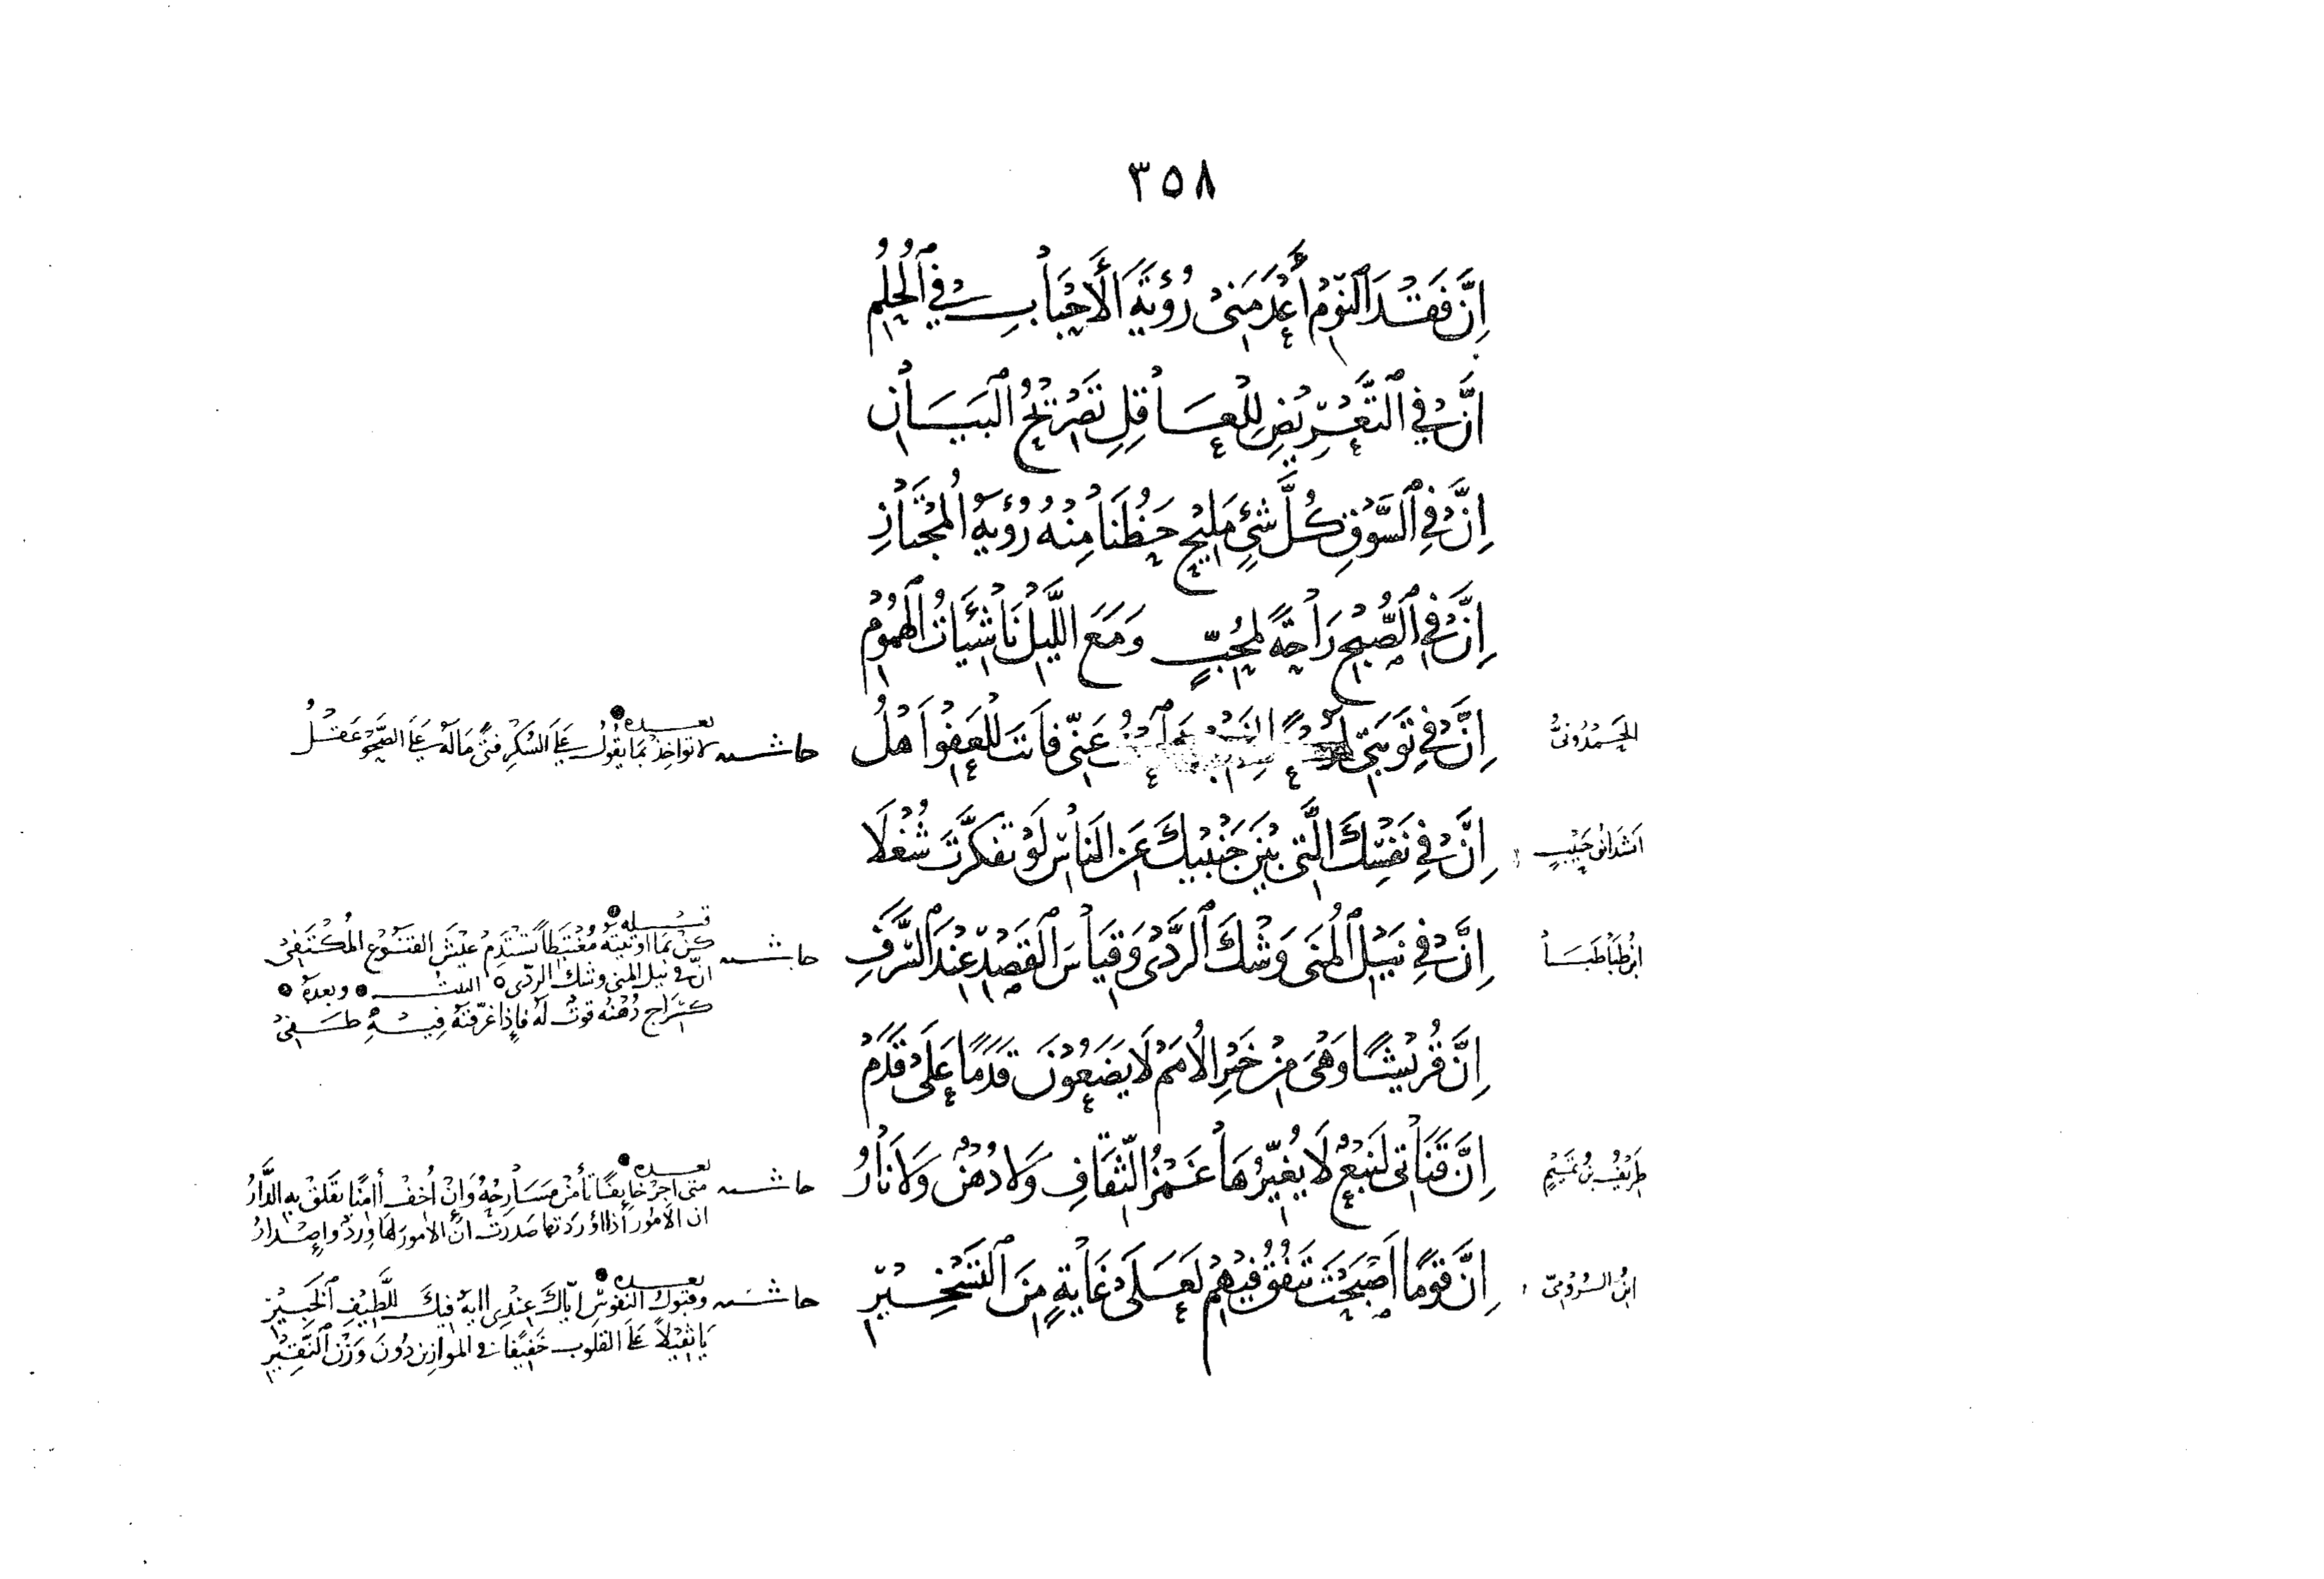 ٣٥٨
إِنَّ فَقْدَ النَّوْمِ أَعْدَمَنِي رُؤْيَةَ الْأَحْبَابِ فِي الْحُلُمِ
إِنَّ فِي التَّعْرِيضِ لِلْعَاقِلِ تَصْرِيحُ الْبَيَانِ
إِنَّ فِي السُّوقِ كُلَّ شَيْءٍ مَلِيحٍ حَظُّنَا مِنْهُ رُؤْيَةُ الْمُجْتَازِ
إِنَّ فِي الصُّبْحِ رَاحَةً لِمُحِبٍّ وَمَعَ اللَّيْلِ نَاشِئَاتُ الْهُمُومِ
الحَمْدُونِيُّ
إِنَّ فِي تَوْبَتِي عَنِّي فَأَنْتَ لِلْعَفْوِ أَهْلُ
حاشية بعده
لا تواخِذْ بمَا يقُولُ عَلَى السُّكْرِ فتىً مَالَهُ عَلَى الصَّحْوِ عَقْلُ
إِنَّ فِي نَفْسِكَ الَّتِي بَيْنَ جَنْبَيْكَ عَنِ النَّاسِ لَوْ تَفَكَّرْتَ شُغْلَا
ابْنُ طَبَاطَبَا
إِنَّ فِي نَيْلِ الْمُنَى وَشْكَ الرَّدَى وَقِيَاسُ الْقَصْدِ عِنْدَ السَّرَفِ
حاشية قبله
كُنْ بمَا اوتيتَهُ مُغْتَبِطاً تَسْتَدِمْ عَيْشَ القَنُوعِ المُكْتَفِي
انّ في نيل المنى وشك الردى البيت وبعده
كَسِرَاجٍ دُهْنُهُ قوتٌ لَهُ فإذا غرّقتَهُ فِيهِ طَفِي
إِنَّ قُرَيْشًا وَهْيَ مِنْ خَيْرِ الْأُمَمِ لَا يَضَعُونَ قَدَمًا عَلَى قَدَمْ
طَرِيفُ بنُ تَمِيمٍ
إِنَّ قَنَاتِي لَنَبْعٌ لَا يُغَيِّرُهَا غَمْزُ الثِّقَافِ وَلَا دُهْنٌ وَلَا نَارُ
حاشية بعده
متى اجِرْ خَايفًا تأمَنْ مَسَارِحُهُ وَإِنْ أُخِفْ آمنًا تقلَقْ بِهِ الدَّارُ
ان الامُور اذا اوردتها صدرَتْ انّ الامور لهَا وِرْدٌ واصْدارُ
ابْنُ الرُّومِيّ
إِنَّ قَوْمًا أَصْبَحْتَ تَنْفُقُ فِيهِمْ لَعَلَى غَايَةٍ مِنَ التَّسْخِيرِ
حاشية بعده
وقبُولُ النفوسِ إيّاكَ عِنْدِي آيةٌ فيكَ للَّطِيفِ الخَبِيرِ
يَا ثقيلاً عَلَى القلُوبِ خَفِيفًا في الموازين دُونَ وَزْنِ النَّقِيرِ